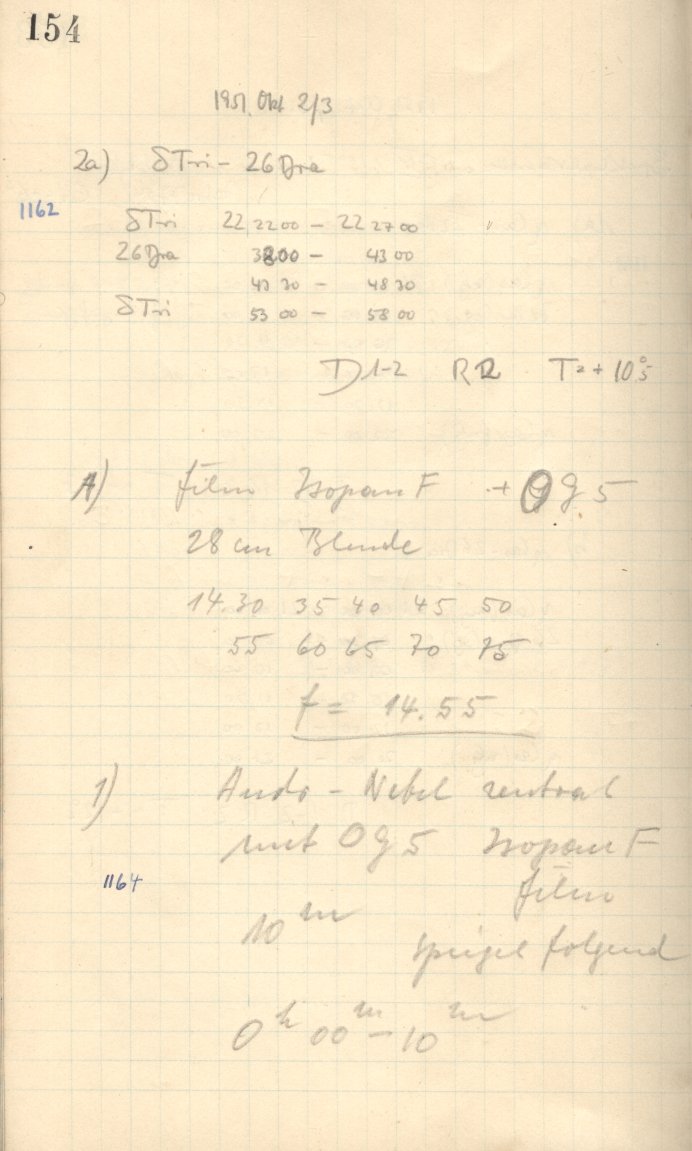 154
1951. Okt 2/3
2a) δTri - 26 Dra
1162
δTri 22 22 00 - 22 27 00
26 Dra 3800 - 43 00
43 30 - 48 30
δTri 53 00 - 58 00
D 1-2 R2 T = + 10°.5
A) Film Isopan F + OG 5
28 cm Blende
14.30 35 40 45 50
55 60 65 70 75
f = 14.55
1) Andr - Nebel zentral
mit OG 5 Isopan F
Film
1164
10 m
Spiegel folgend
0 h 00 m - 10 m